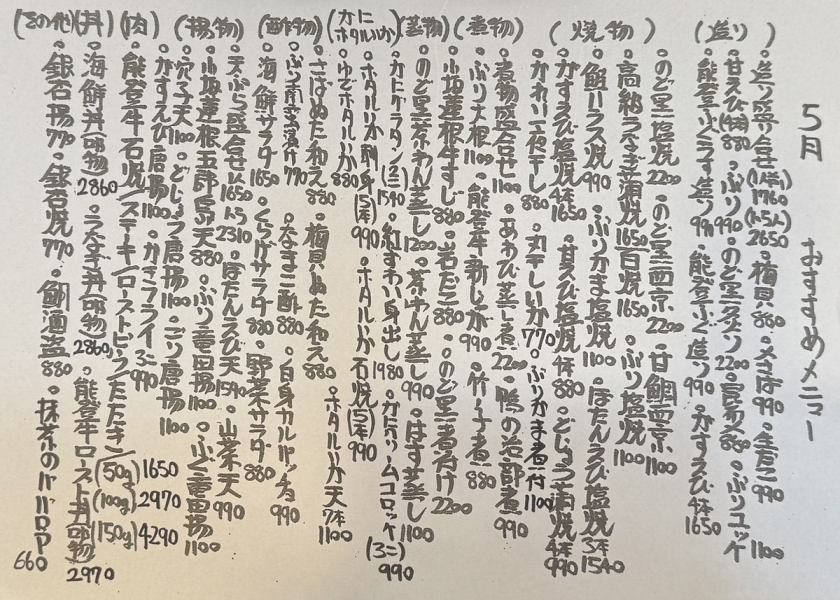 5月 おすすめメニュー
(造り)
・造り盛り合せ(1人前)1760(2、3人)2650・梅貝860・〆さば990・生だこ990
・甘えび(6本)880・ぶり990・のど黒タタキ2200・ぶりユッケ1100
・能登ふぐうす造り990・能登ふぐ造り990・がすえび4本1650
(焼物)
・のど黒塩焼2200・のど黒西京2200・甘鯛西京1100
・高級うなぎ蒲焼1650・白焼1650・ぶり塩焼1100
・鮭ハラス焼990・ぶりかま塩焼1100・ぼたんえび塩焼3本1540
・がすえび塩焼4本1650・甘えび塩焼4本880・どじょう蒲焼4本990
・かれい一夜干し880・丸干しいか770・ぶりかま煮付1100
(煮物)
・煮物盛合せ1100・あわび蒸し煮2200・鴨の治部煮990
・ぶり大根1100・能登牛肉じゃが990・竹の子煮880
・小坂蓮根牛すじ880・岩だこ880・のど黒煮付け2200
(蒸物)
・のど黒茶わん蒸し1200・茶わん蒸し990・はす蒸し1100
(かに ホタルいか)
・かにグラタン(3ニ)1540・紅ずわい身出し1980・かにクリームコロッケ(3ニ)990
・ホタルいか刺身(15本)990・ホタルいか石焼(15本)990
・ゆでホタルいか880・ホタルいか天7本1100
(酢物)
・さばぬた和え880・梅貝ぬた和え880
・ぶり南蛮漬け770・なまこ酢880・白身カルパッチョ990
・海鮮サラダ1650・くらげサラダ880・野菜サラダ880
(揚物)
・天ぷら盛合せ1650 2310・ぼたんえび天1540・山菜天990
・小坂蓮根五郎島天880・ぶり竜田揚1100・ふぐ竜田揚1100
・穴子天1100・どじょう唐揚1100・ごり唐揚1100
・がすえび唐揚1100・かきフライ3ニ990
(肉)
・能登牛石焼/ステーキ/ローストビーフ/たたき(50g)1650(100g)2970(150g)4290
(丼)
・海鮮丼(吸物)2860・うなぎ丼(吸物)2860・能登牛ロース丼(吸物)2970
(その他)
・銀杏揚770・銀杏焼770・鯛酒盗880・抹茶のババロア660